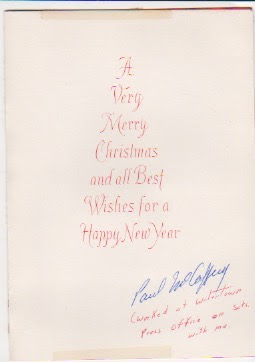 A
Very
Merry
Christmas
and all Best
Wishes for a
Happy New Year
Paul McCaffrey
(worked at
Press Office on
with me.